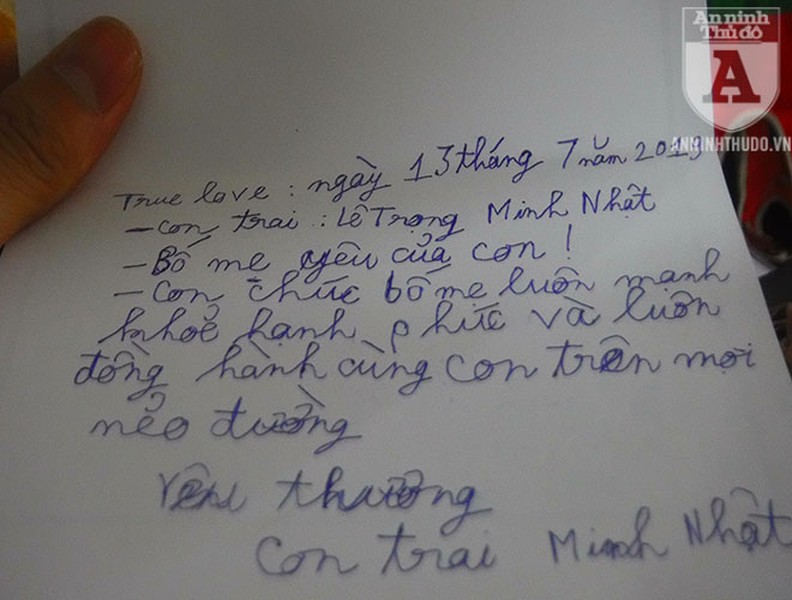 An ninh
Thủ đô
A
ANNINHTHUDO.VN
True love : ngày 13 tháng 7 năm 2013
- con trai : Lê Trọng Minh Nhật
- Bố mẹ yêu của con !
- Con chúc bố mẹ luôn mạnh
khoẻ hạnh phúc và luôn
đồng hành cùng con trên mọi
nẻo đường
Yêu thương
Con trai Minh Nhật